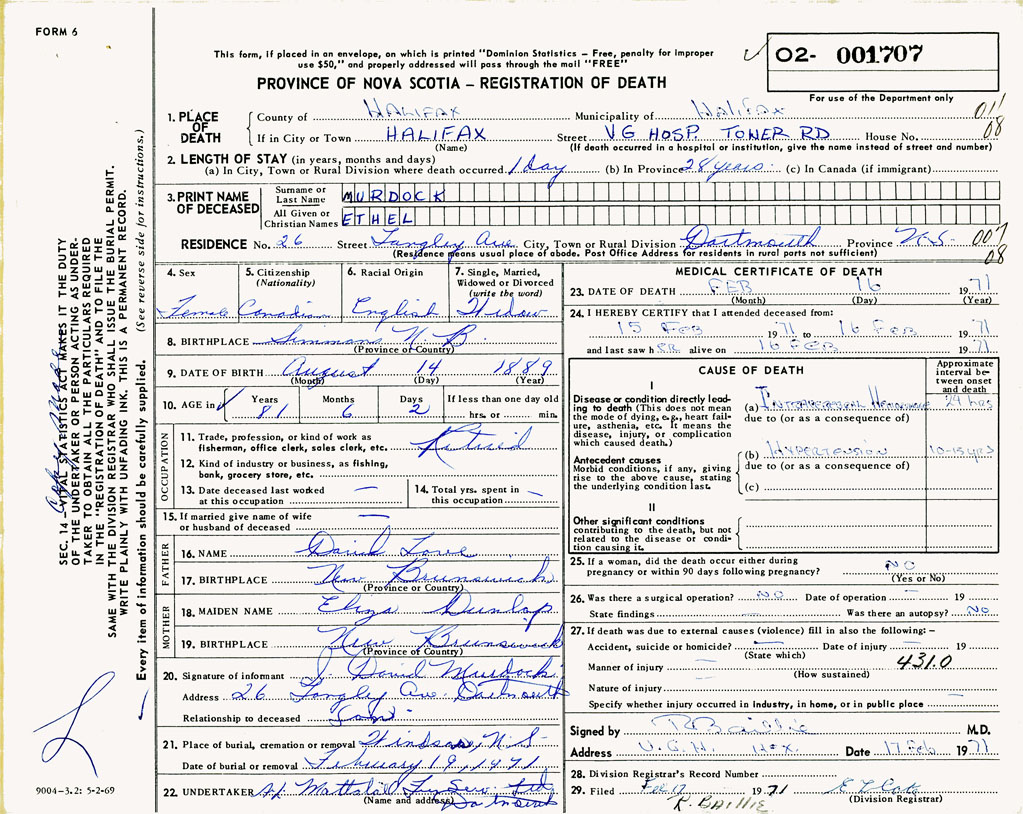 FORM 6
This form, if placed in an envelope, on which is printed "Dominion Statistics – Free, penalty for improper
use $50," and properly addressed will pass through the mail "FREE"
02- 001707
PROVINCE OF NOVA SCOTIA – REGISTRATION OF DEATH
For use of the Department only
1. PLACE OF DEATH
County of HALIFAX Municipality of Halifax 011
If in City or Town HALIFAX Street VG HOSP. TOWER RD House No. 08
(Name) (If death occurred in a hospital or institution, give the name instead of street and number)
2. LENGTH OF STAY (in years, months and days)
(a) In City, Town or Rural Division where death occurred 1 Day (b) In Province 28 years (c) In Canada (if immigrant)
3. PRINT NAME OF DECEASED
Surname or Last Name MURDOCK
All Given or Christian Names ETHEL
RESIDENCE No. 26 Street Langley Ave. City, Town or Rural Division Dartmouth Province N.S. 007
(Residence means usual place of abode. Post Office Address for residents in rural parts not sufficient) 08
4. Sex
Female
5. Citizenship
(Nationality)
Canadian
6. Racial Origin
English
7. Single, Married,
Widowed or Divorced
(write the word)
Widow
8. BIRTHPLACE N.B.
(Province or Country)
9. DATE OF BIRTH August 14 1889
(Month) (Day) (Year)
10. AGE in Years Months Days If less than one day old
81 6 2 hrs. or min.
OCCUPATION
11. Trade, profession, or kind of work as
fisherman, office clerk, sales clerk, etc. Retired
12. Kind of industry or business, as fishing,
bank, grocery store, etc.
13. Date deceased last worked
at this occupation —
14. Total yrs. spent in
this occupation —
15. If married give name of wife
or husband of deceased —
FATHER
16. NAME David Lowe
17. BIRTHPLACE New Brunswick
(Province or Country)
MOTHER
18. MAIDEN NAME Eliza Dunlap
19. BIRTHPLACE New Brunswick
(Province or Country)
20. Signature of informant J. David Murdock
Address 26 Langley Ave. Dartmouth
Relationship to deceased Son
21. Place of burial, cremation or removal Windsor, N.S.
Date of burial or removal February 19, 1971
22. UNDERTAKER
(Name and address) Dartmouth
MEDICAL CERTIFICATE OF DEATH
23. DATE OF DEATH FEB 16 1971
(Month) (Day) (Year)
24. I HEREBY CERTIFY that I attended deceased from:
15 FEB 1971 to 16 FEB 1971
and last saw h ER alive on 16 FEB 1971
CAUSE OF DEATH
Approximate
interval be-
tween onset
and death
I
Disease or condition directly lead-
ing to death (This does not mean
the mode of dying, e.g., heart fail-
ure, asthenia, etc. It means the
disease, injury, or complication
which caused death.)
(a) INTRACEREBRAL HEMORRHAGE 24 hrs
due to (or as a consequence of)
Antecedent causes
Morbid conditions, if any, giving
rise to the above cause, stating
the underlying condition last.
(b) HYPERTENSION 10-15 yrs
due to (or as a consequence of)
(c)
II
Other significant conditions
contributing to the death, but not
related to the disease or condi-
tion causing it.
25. If a woman, did the death occur either during
pregnancy or within 90 days following pregnancy? NO
(Yes or No)
26. Was there a surgical operation? NO Date of operation — 19
State findings — Was there an autopsy? NO
27. If death was due to external causes (violence) fill in also the following: –
Accident, suicide or homicide? — Date of injury — 19
(State which)
Manner of injury — 431.0
(How sustained)
Nature of injury
Specify whether injury occurred in industry, in home, or in public place —
Signed by R Baillie M.D.
Address V.G.H. HFX. Date 17 Feb 1971
28. Division Registrar's Record Number
29. Filed Feb 17 1971
(Division Registrar)
R. BAILLIE
SEC. 14 – VITAL STATISTICS ACT MAKES IT THE DUTY
OF THE UNDERTAKER OR PERSON ACTING AS UNDER-
TAKER TO OBTAIN ALL THE PARTICULARS REQUIRED
IN THE "REGISTRATION OF DEATH" AND TO FILE THE
SAME WITH THE DIVISION REGISTRAR WHO SHALL ISSUE THE BURIAL PERMIT.
WRITE PLAINLY WITH UNFADING INK. THIS IS A PERMANENT RECORD.
Every item of information should be carefully supplied. (See reverse side for instructions.)
9004-3.2: 5-2-69